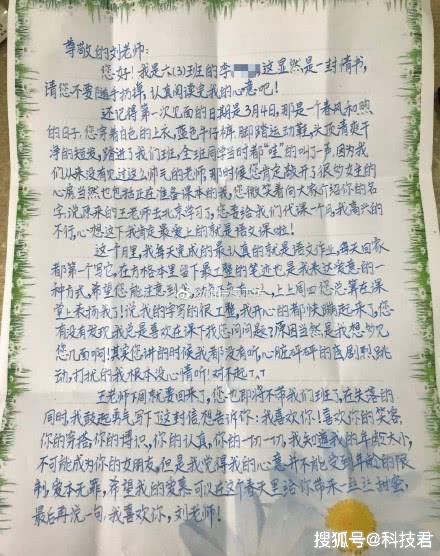 尊敬的刘老师:
您好!我是六(3)班的李 这显然是一封情书,
请您不要随手扔掉,认真阅读完我的心意吧!
还记得第一次见面的日期是3月4日,那是个春风和煦
的日子,您穿着白色的上衣,蓝色牛仔裤,脚踏运动鞋,头顶清爽干
净的短发,踏进了我们班,全班同学当时都"哇"的叫了一声,因为我
们从来没有见过这么帅气的老师,那时候您肯定敲开了很多女生的
心扉当然也包括正在准备课本的我,您微笑着向大家介绍你的名
字,说原来的王老师去北京学习了,您要给我们代课一个月,我高兴的
不行,心想这下我肯定最爱上的就是语文课啦!
这个月里,我每天完成的最认真的就是语文作业,每天回家
都第一个写它,在方格本里留下最工整的笔迹也是我表达爱意的一
种方式,希望您能注意到 上上周四您总算在课
堂上表扬我了!说我的字写的很工整,我开心的都快蹦起来了,您
有没有发现,我总是喜欢在课下找您问问题?原因当然是我想多见
您几面啊!其实您讲的时候我都没有听,心脏砰砰的直剧烈跳
动,打扰的我根本没心情听!对不起T.T
王老师下周就要回来了,您也即将不带我们班了,在失落的
同时,我鼓起勇气,写下了这封信想告诉你:我喜欢你!喜欢你的笑容,
你的穿搭,你的博识,你的认真,你的一切一切,我知道我的年龄太小,
不可能成为你的女朋友,但是我觉得我的心意并不能受到年龄的限
制,爱本无罪,希望我的爱慕可以在这个春天里给你带来一丝丝甜蜜,
最后再说一句:我喜欢你,刘老师!
搜狐号@科技君